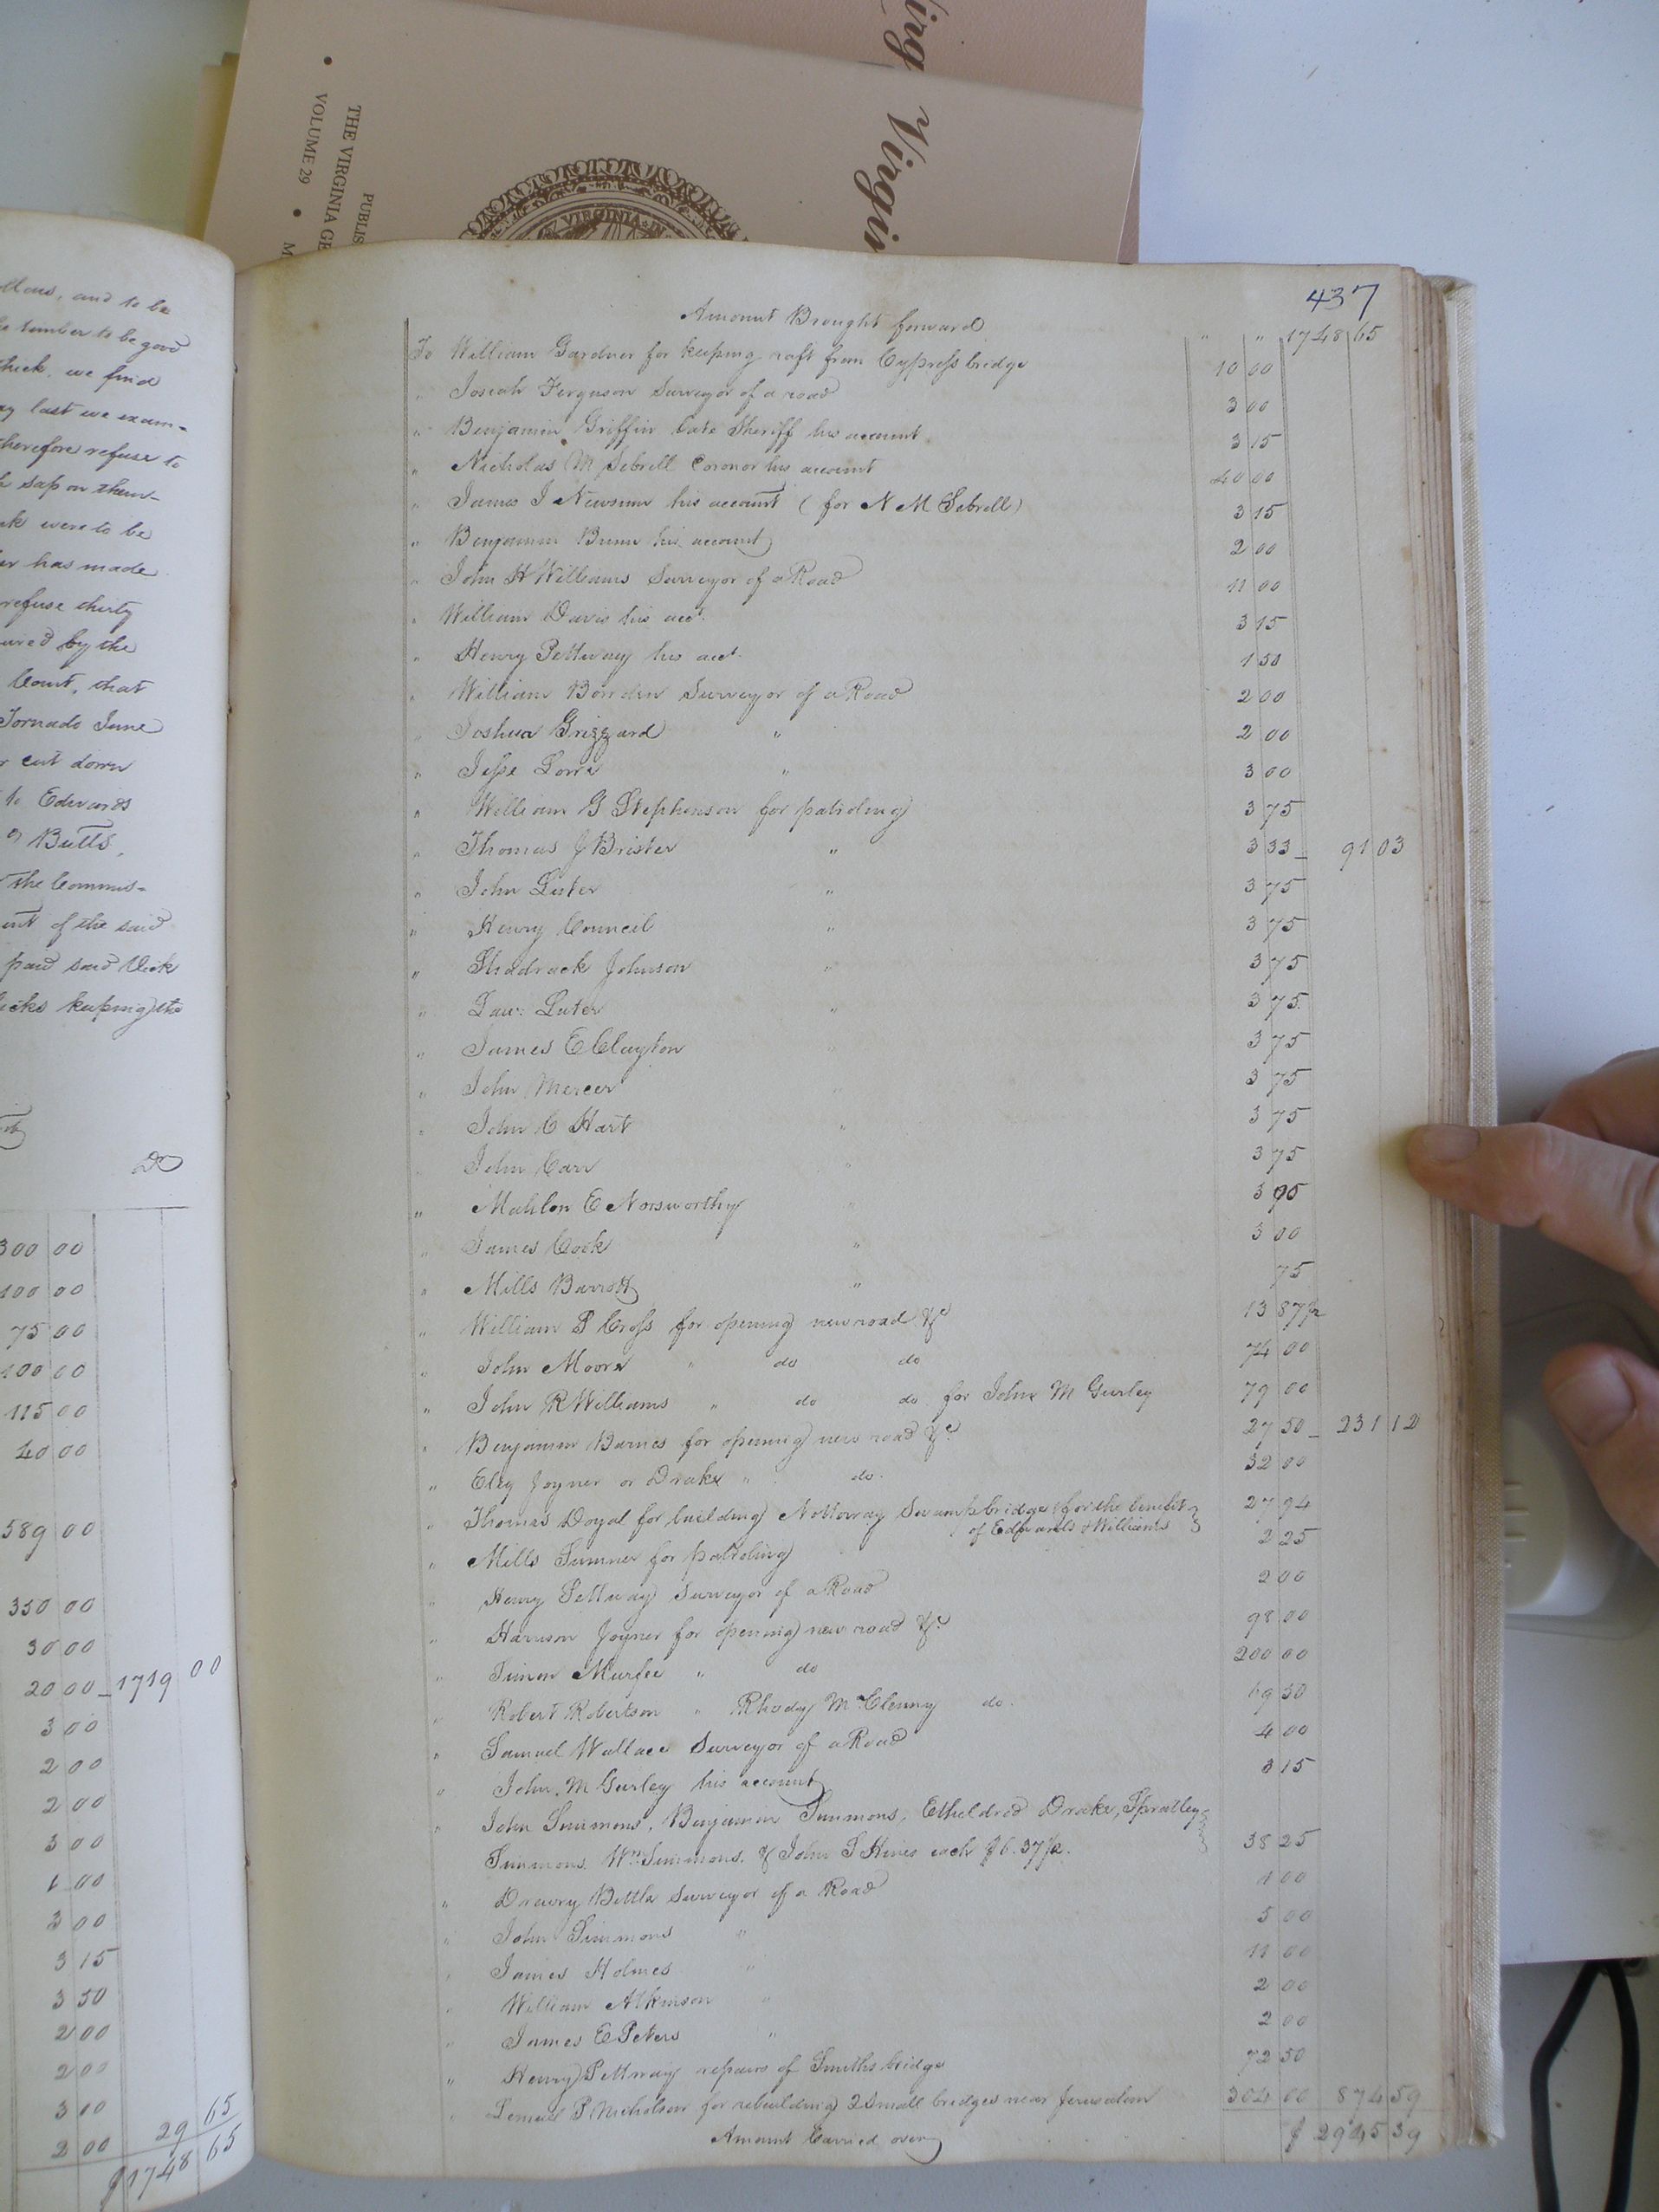 Virgin
THE VIRGINIA GE
VOLUME 29 • M
PUBLIS
VIRGINIA
llows, and to be
timber to be good
thick, we find
last we exam-
therefore refuse to
sap on them-
were to be
has made
refuse thirty
by the
Court, that
Tornado June
cut down
to Edwards
Butts,
the Commis-
of the said
paid said Vick
keeping the
Dr
300 00
100 00
75 00
100 00
115 00
40 00
589 00
350 00
30 00
20 00 1719 00
3 00
2 00
2 00
3 00
1 00
3 00
3 15
3 50
2 00
2 00
3 10
2 00 29 65
$1748 65
437
Amount Brought forward " " 1748 65
To William Gardner for keeping raft from Cypress bridge 10 00
" Josiah Ferguson Surveyor of a road 3 00
" Benjamin Griffin late Sheriff his account 3 15
" Nicholas M Sebrell Coronor his account 40 00
" James J Newsum his account (for N M Sebrell) 3 15
" Benjamin Bunn his account 2 00
" John H Williams Surveyor of a Road 11 00
" William Davis his acct. 3 15
" Henry Pettway his acct. 1 50
" William Bowden Surveyor of a Road 2 00
" Joshua Grizzard " 2 00
" Jesse Lowe " 3 00
" William G Stephenson for patroling 3 75
" Thomas J Brister " 3 33 91 03
" John Luter " 3 75
" Henry Council " 3 75
" Shadrack Johnson " 3 75
" Law: Luter " 3 75
" James E Clayton " 3 75
" John Mercer " 3 75
" John C Hart " 3 75
" John Carr " 3 75
" Mahlon E Norsworthy " 3
" James Cook " 3 00
" Mills Barrott " 75
" William P Cross for opening new road &c 13 87½
" John Moore " do do 74 00
" John R Williams " do do for John M Gurley 79 00
" Benjamin Barnes for opening new road &c 27 50 231 12
" Eley Joyner or Drake " do. 32 00
" Thomas Doyal for building Nottoway Swamp bridge (for the benefit 27 94
of Edwards & Williams
" Mills Sumner for patroling 2 25
" Henry Pettway Surveyor of a Road 2 00
" Harrison Joyner for opening new road &c 98 00
" Simon Murfee " do 200 00
" Robert Robertson " Rhody McClenny do. 69 50
" Samuel Wallace Surveyor of a Road 4 00
" John M Gurley his account 3 15
" John Simmons, Benjamin Simmons, Etheldred Drake, Spratley
Simmons, Wm Simmons, & John S Hines each $6.37½. 38 25
" Drewry Bittle Surveyor of a Road 1 00
" John Simmons " 5 00
" James Holmes " 11 00
" William Atkinson " 2 00
" James E Peters " 2 00
" Henry Pettway repairs of Smiths bridge 72 50
" Lemuel P Nicholson for rebuilding 2 Small bridges near Jerusalem 304 00 874 59
Amount Carried over $ 2945 39